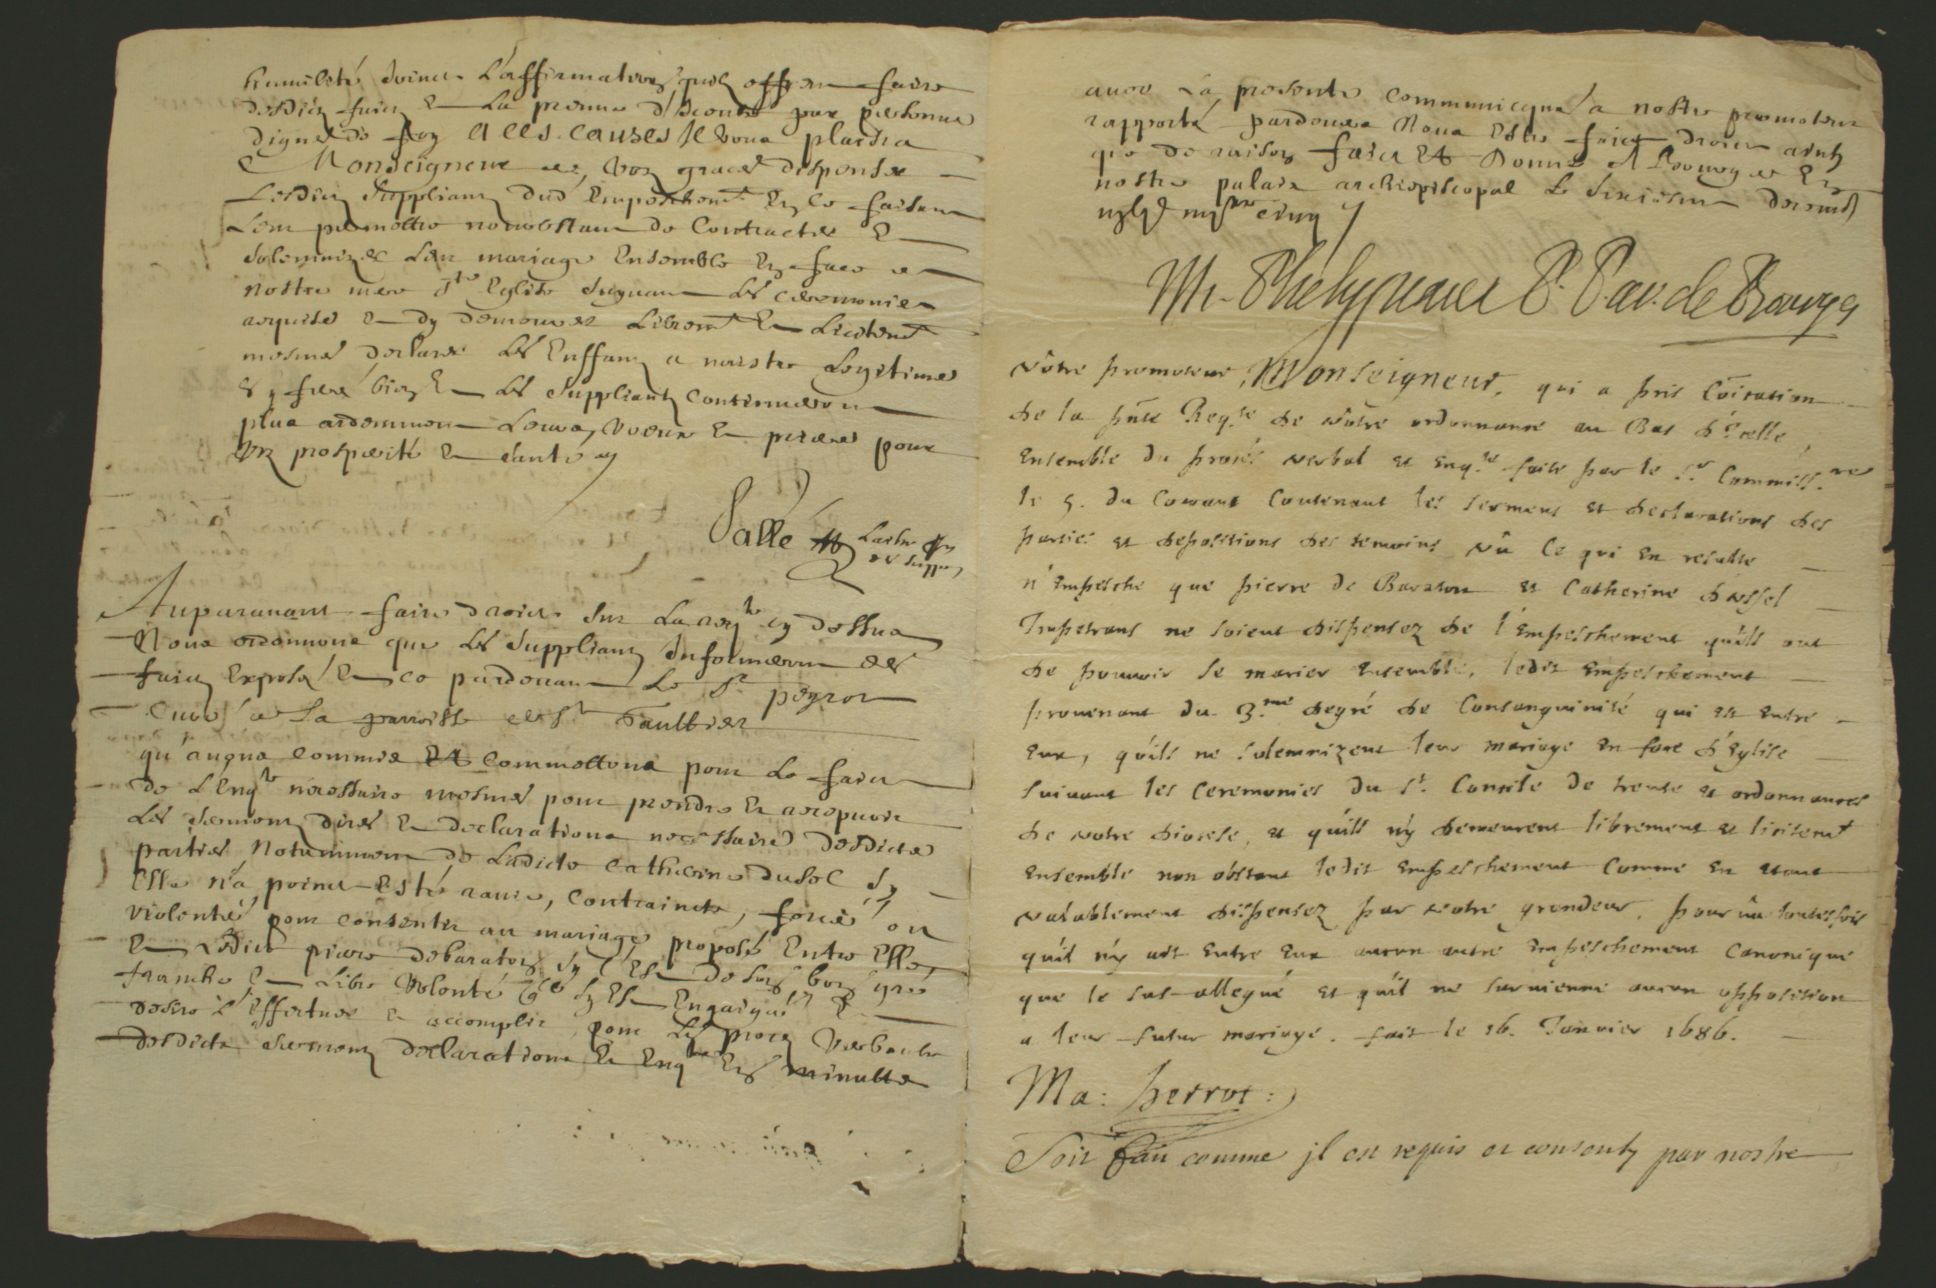 humilité joinct l'affirmation quilz offrent faire
desdictz faictz et la preuve d'iceux par personne
digne de foy A CES CAUSES Il vous plaira
Monseigneur de voz graces dispenser
Lesdictz suppliantz dud empeschemt en ce faisant
Leur permettre nonobstant de Contracter et
solemnizer leur mariage Ensemble en face de
nostre mere ste Eglise suyvant les ceremonies
requises et dy demeurer libremt et licitemt
mesmes declarer les Enffans a naistre Legitimes
Et y ferez bien et les Suppliantz continueront
plus ardemment leurs voeux et prieres pour
voz prosperité et santé
Vallé
Auparavant faire droict sur la reqte cy dessus
Nous ordonnons que les Suppliantz Informeront des
faictz Exposez et ce pardevant le Sr peyrot
Curé de la parroisse de St Saultier
qu'avons commis Et Commettons pour le faict
de L'enqte necessaire mesmes pour prendre et recepvoir
les sermentz dires et declarations necessaires desdictes
parties Notamment de Ladicte Catherine dusol sy
Elle n'a poinct esté ravie, contraincte, forcée, ou
violentée pour consentir au mariage proposé Entre Elle
Et Ledict pierre debaraton sy C'est de son bon gré
franche et libre volonté qe sy est Engaigée et
desire l'effectuer et accomplir pour les proces verbaulx
desdictz sermentz declarations et enqte en minutte
avec la presente communicquée a nostre promoteur
rapporté pardevers Nous estre faict droict ainsy
que de raison faict Et Donné A Bourges En
nostre palais archiepiscopal le sixiesme
M. Phelypeaux P. P. ar. de Bourges
vôtre promoteur, Monseigneur, qui a pris Cõication
de la pñte Reqte de vôtre ordonnance au Bas d'icelle,
Ensemble du procés verbal et Enqte faite par le sr Commissre
le 5. du Courant Contenant les serments et declarations des
parties et depositions des temoins vû ce qui En resulte
n'Empesche que pierre de Baraton et Catherine d'ussel
Impetrans ne soient dispensez de l'Empeschement qu'ils ont
de pouvoir se marier Ensemble, ledit Empeschement
provenant du 3.me degré de Consanguinité qui est entre
Eux, qu'ils ne solemnizent leur mariage en face d'Eglise
suivant les Ceremonies du st. Concile de trente et ordonnances
de votre diocese, et qu'ils n'y demeurent librement et licitemt
Ensemble non obstant ledit Empeschement Comme En etant
valablement dispensez par votre grandeur, pourvû toutesfois
qu'il n'y ait Entre Eux aucun autre Empeschement Canonique
que le sus-allegué et qu'il ne survienne aucun opposition
a leur futur mariage. fait le 16. Janvier 1686.
Ma: perrot:
Soit fait comme jl est requis et consenty par nostre